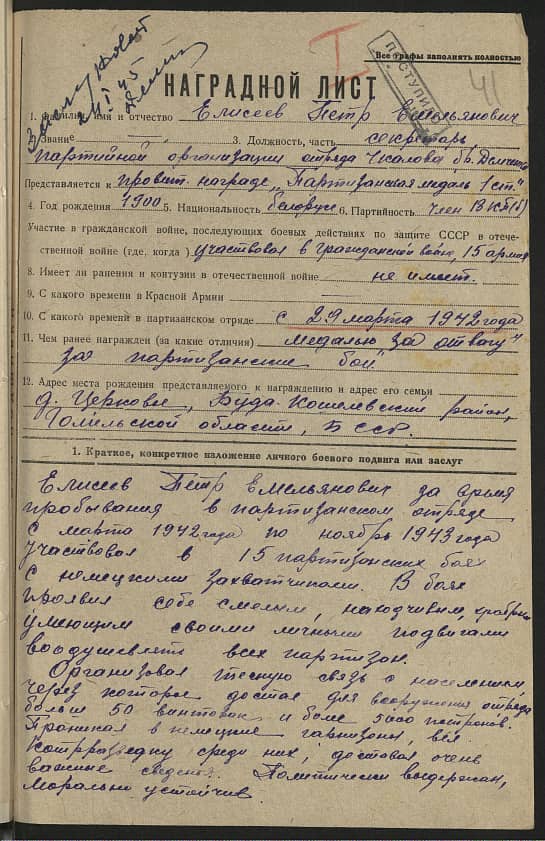 24/I 45
I
41
Все графы заполнять полностью
ПОСТУПИЛ
НАГРАДНОЙ ЛИСТ
1. Фамилия, имя и отчество Елисеев Петр Емельянович
2. Звание — 3. Должность, часть секретарь
партийной организации отряда Чкалова бр.
Представляется к правит. награде „Партизанская медаль 1 ст."
4. Год рождения 1900 5. Национальность белорус 6. Партийность член ВКП(б)
Участие в гражданской войне, последующих боевых действиях по защите СССР в отече-
ственной войне (где, когда) участвовал в Гражданской войне, 15 армия
8. Имеет ли ранения и контузии в отечественной войне не имеет.
9. С какого времени в Красной Армии
10. С какого времени в партизанском отряде с 29 марта 1942 года
11. Чем ранее награжден (за какие отличия) медалью за отвагу"
за партизанские бои
12. Адрес места рождения представляемого к награждению и адрес его семьи
д. Церковье, Буда-Кошелевский район,
Гомельской области, БССР.
1. Краткое, конкретное изложение личного боевого подвига или заслуг
Елисеев Петр Емельянович за время
пробывания в партизанском отряде
с марта 1942 года по ноябрь 1943 года
участвовал в 15 партизанских боях
с немецкими захватчиками. В боях
проявил себе смелым, находчивым, храбрым
умеющим своими личными подвигами
воодушевлять всех партизан.
Организовал тесную связь с населением,
через которые достал для вооружения отряда
больше 50 винтовок и более 5000 патронов.
Проникал в немецкие гарнизоны, вел
контрразведку среди них, доставал очень
важные сведен. Политически выдержан,
морально устойчив.